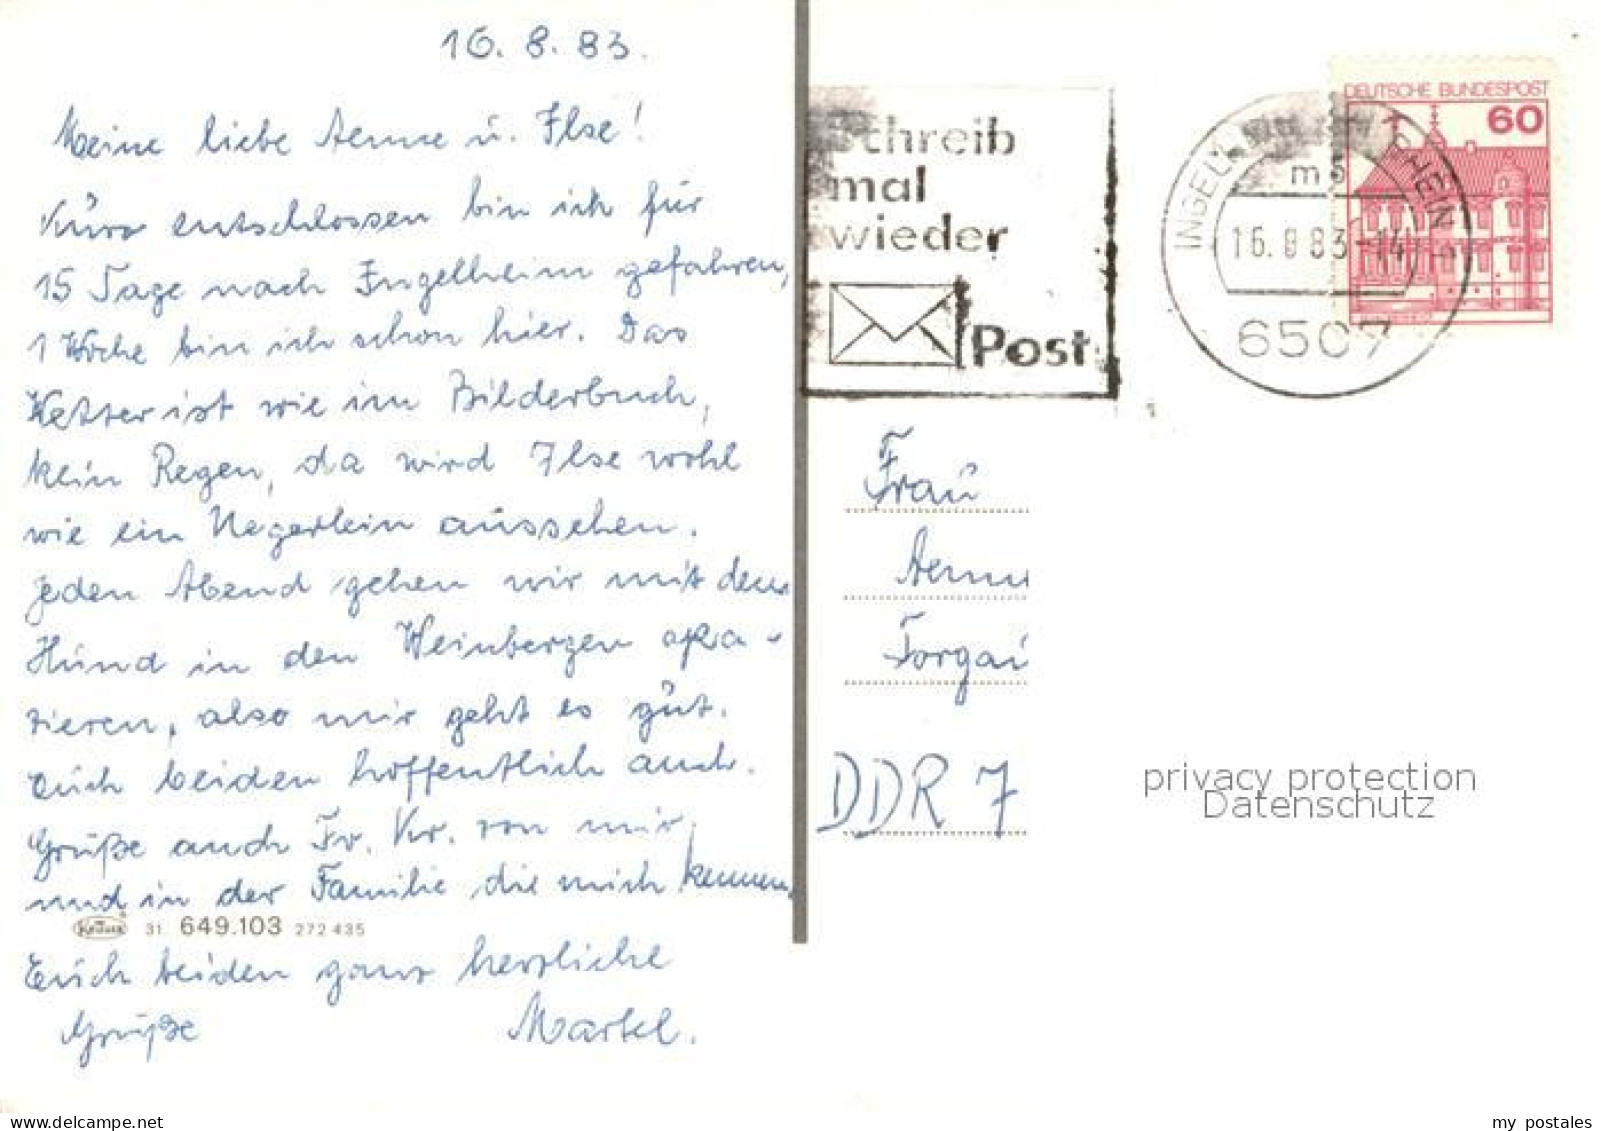 16. 8. 83.
Meine liebe Aenne u. Ilse!
Kurz entschlossen bin ich für
15 Tage nach Ingelheim gefahren,
1 Woche bin ich schon hier. Das
Wetter ist wie im Bilderbuch,
kein Regen, da wird Ilse wohl
wie ein Negerlein aussehen.
Jeden Abend gehen wir mit dem
Hund in den Weinbergen spa-
zieren, also mir geht es gut.
Euch beiden hoffentlich auch.
Grüße auch Fr. Kr. von mir
und in der Familie die mich kennen,
31 649.103 272 435
Euch beiden ganz herzliche
Grüße Martel.
Schreib
mal
wieder
Post
INGELHEIM AM RHEIN 1
mc
16.8.83-14
6507
DEUTSCHE BUNDESPOST
60
Frau
Aenne
Torgau
DDR 7
privacy protection
Datenschutz
my postales